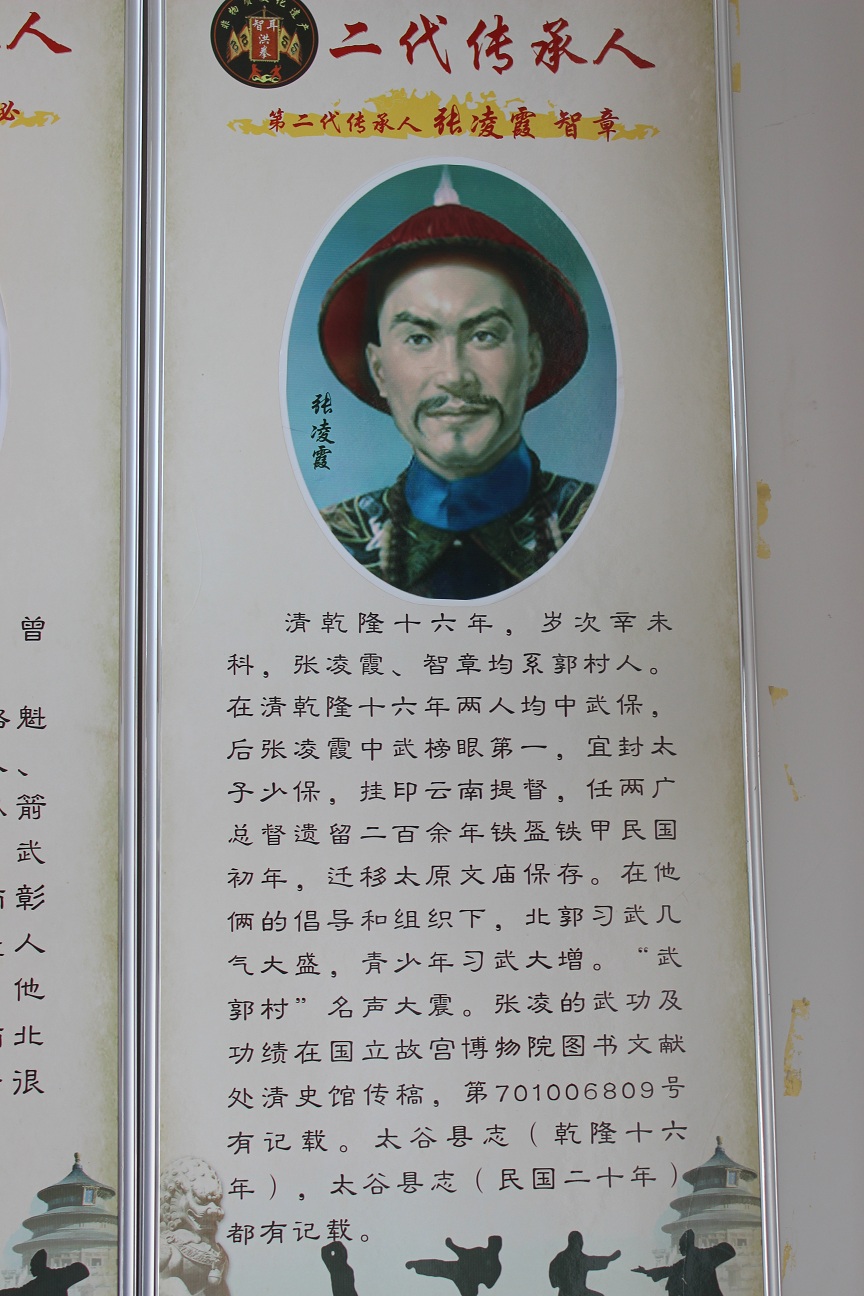 非物质文化遗产
智耳
洪拳
二代传承人
第二代传承人 张凌霞 智章
张凌霞
清乾隆十六年，岁次辛未
科，张凌霞、智章均系郭村人。
在清乾隆十六年两人均中武保，
后张凌霞中武榜眼第一，宜封太
子少保，挂印云南提督，任两广
总督遗留二百余年铁盔铁甲民国
初年，迁移太原文庙保存。在他
俩的倡导和组织下，北郭习武几
气大盛，青少年习武大增。“武
郭村”名声大震。张凌的武功及
功绩在国立故宫博物院图书文献
处清史馆传稿，第701006809号
有记载。太谷县志（乾隆十六
年），太谷县志（民国二十年）
都有记载。
人
曾
魁
、
箭
武
彰
人
他
北
很